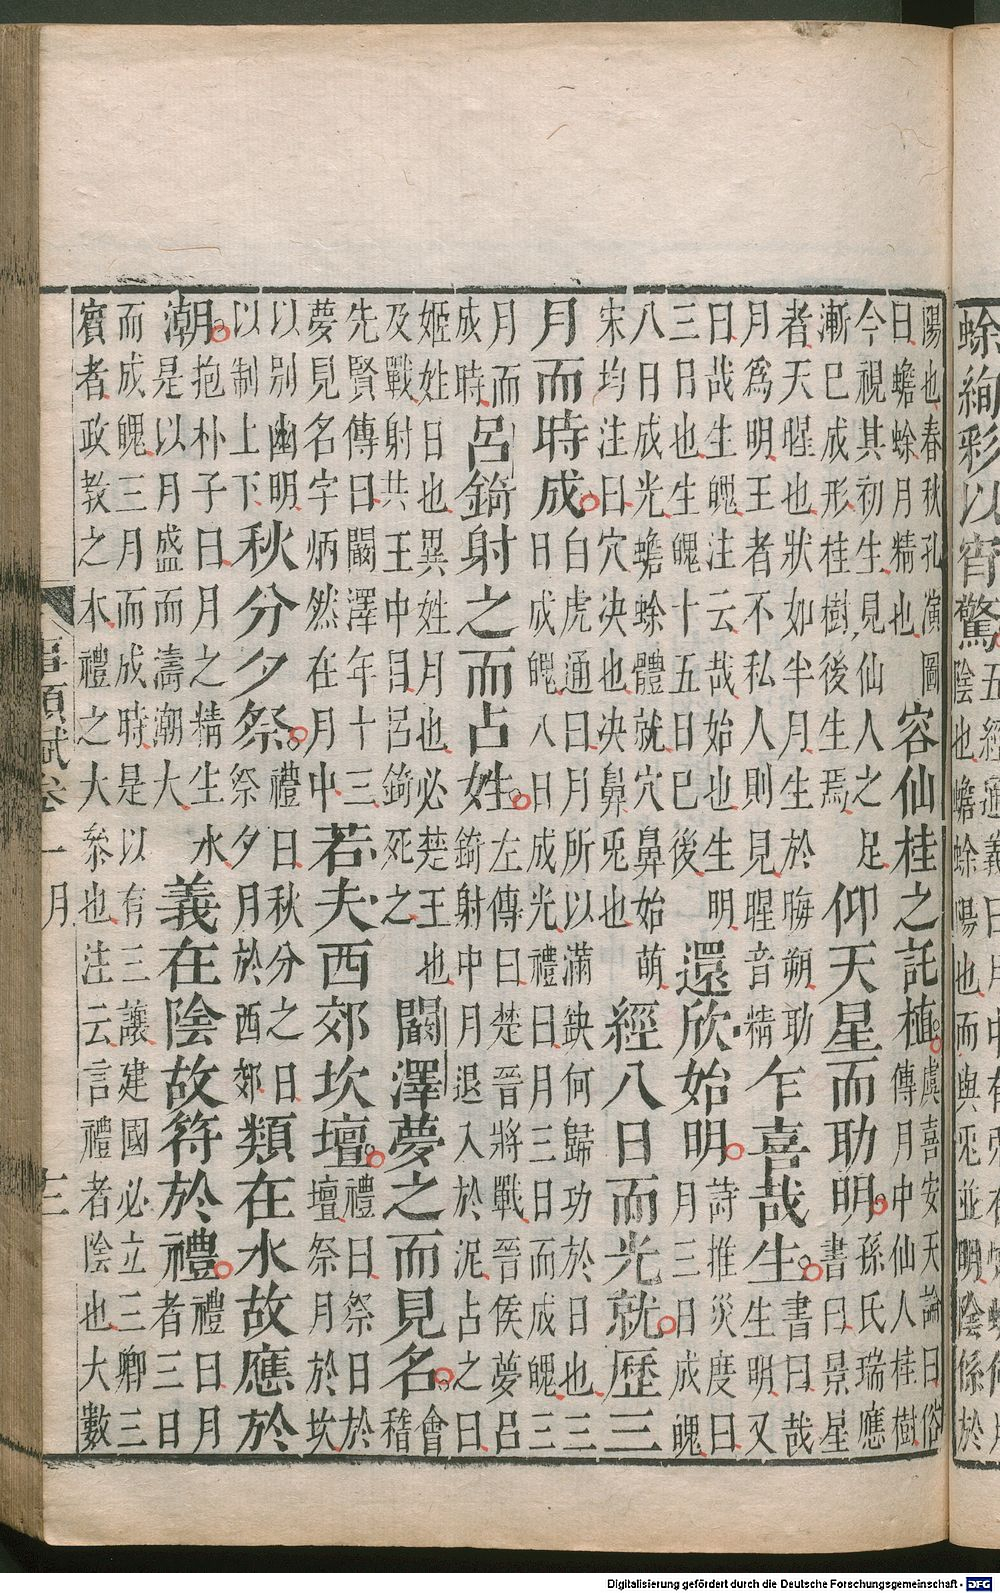 蜍絢彩以宵驚
五經通義曰月中有
陰也蟾蜍陽也而與兎並明陰係於
陽也春秋孔演圖
曰蟾蜍月精也
容仙桂之託植
虞喜安天論曰俗
傳月中仙人桂樹
今視其初生見仙人之足
漸巳成形桂樹後生焉
仰天星而助明
孫氏瑞應
書曰景星
者天暒也狀如半月生於晦朔助
月爲明王者不私人則見暒音精
乍喜哉生
書曰哉
生明又
曰哉生魄注云哉始也生明
三日也生魄十五日巳後
還欣始明
詩推災度曰
月三日成魄
八日成光蟾蜍體就穴鼻始萌
宋均注曰穴决也决鼻兎也
經八日而光就歷三
月而時成
白虎通曰月所以滿缺何歸功於日也三
日成魄八日成光禮曰月三日而成魄三
月而
成時
呂錡射之而占姓
左傳曰楚晉將戰晉侯夢呂
錡射中月退入於泥占之曰
姬姓日也異姓月也必楚王也
及戰射共王中目呂錡死之
闞澤夢之而見名
會
稽
先賢傳曰闞澤年十三
夢見名字炳然在月中
若夫西郊坎壇
禮曰祭日於
壇祭月於坎
以別幽明
以制上下
秋分夕祭
禮曰秋分之日
祭夕月於西郊
類在水故應於
潮
抱朴子曰月之精生水
是以月盛而濤潮大
義在陰故符於禮
禮曰月
者三日
而成魄三月而成時是以有三讓建國必立三卿三
賓者政教之本禮之大叅也注云言禮者陰也大數
事類賦卷一月
Digitalisierung gefördert durch die Deutsche Forschungsgemeinschaft - DFG